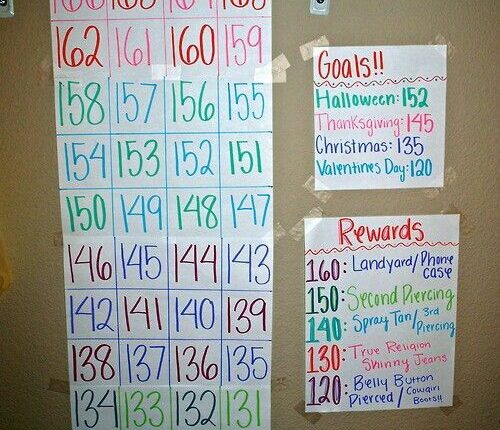 166 165
162 161 160 159
158 157 156 155
154 153 152 151
150 149 148 147
146 145 144 143
142 141 140 139
138 137 136 135
134 133 132 131
Goals!!
Halloween: 152
Thanksgiving: 145
Christmas: 135
Valentines Day: 120
Rewards
160: Landyard/Phone
case
150: Second Piercing
140: Spray Tan/3rd
Piercing
130: True Religion
Skinny Jeans
120: Belly Button
Pierced/Cowgirl
Boots!!